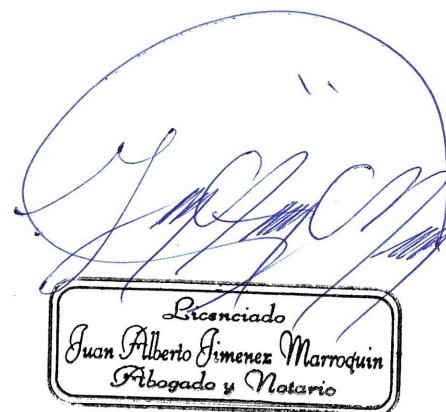 Licenciado
Juan Alberto Jimenez Marroquin
Abogado y Notario